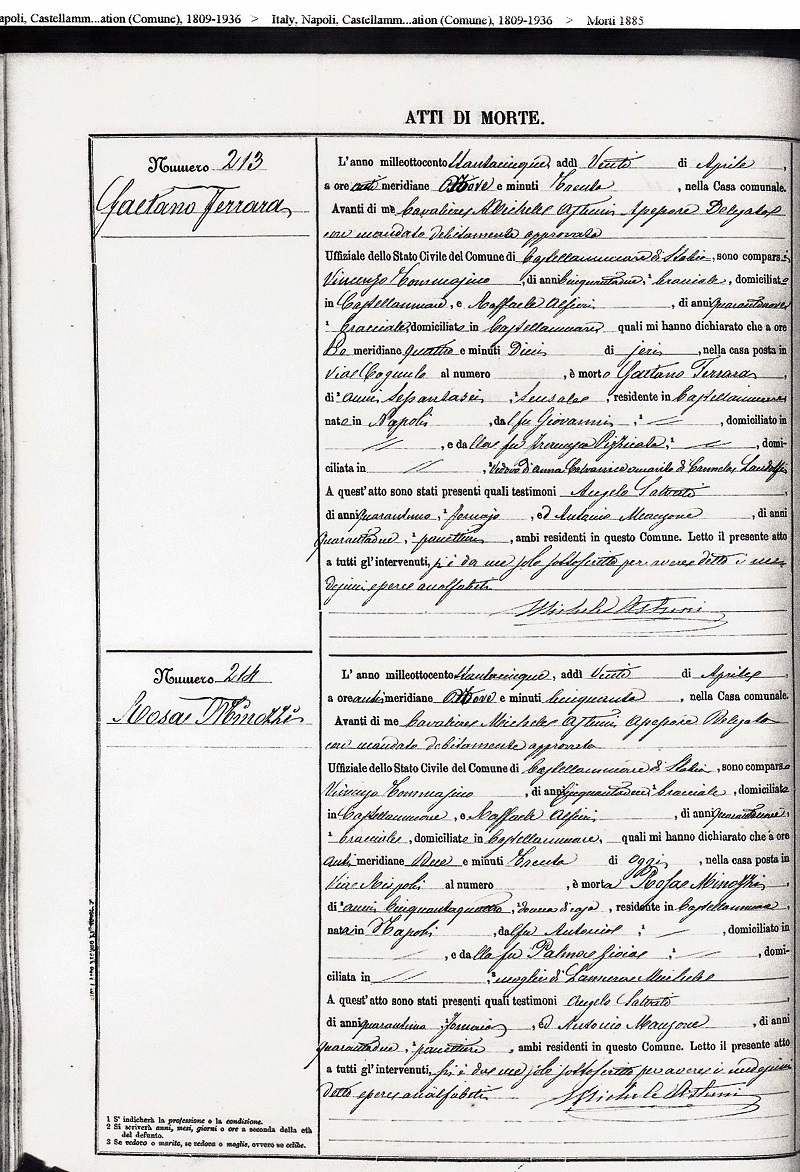 apoli, Castellamm...ation (Comune), 1809-1936 > Italy, Napoli, Castellamm...ation (Comune), 1809-1936 > Morti 1885
ATTI DI MORTE.
Numero 213
Gaetano Ferrara
L'anno milleottocento ttantacinque, addì Venti di Aprile,
a ore anti meridiane Nove e minuti Trenta, nella Casa comunale.
Avanti di me Cavaliere Michele Assessore Delegato
con mandato debitamente approvato
Uffiziale dello Stato Civile del Comune di Castellammare di Stabia, sono comparsi
Vincenzo Tommasino, di anni cinquantadue, bracciale, domiciliato
in Castellammare, e Raffaele, di anni quarantanove
bracciale, domiciliato in Castellammare quali mi hanno dichiarato che a ore
Po meridiane quattro e minuti Dieci di jeri, nella casa posta in
Via Cognulo al numero , è morto Gaetano Ferrara,
di anni Sensale, residente in Castellammare
nato in Napoli, dal fu Giovanni, domiciliato in
, e da lla fu, domi-
ciliata in , Vedovo di Anna marito di Carmela
A quest'atto sono stati presenti quali testimoni Angelo
di anni quarantuno, fornajo, ed Antonio Mangone, di anni
quarantadue, panettiere, ambi residenti in questo Comune. Letto il presente atto
a tutti gl'intervenuti, si è da me solo sottoscritto per avere detto i me
desimi essere analfabeti
Michele Asturi
Numero 214
Rosa Minozzi
L'anno milleottocento ttantacinque, addì Venti di Aprile,
a ore anti meridiane Nove e minuti Cinquanta, nella Casa comunale.
Avanti di me Cavaliere Michele Assessore Delegato
con mandato debitamente approvato
Uffiziale dello Stato Civile del Comune di Castellammare di Stabia, sono comparsi
Vincenzo Tommasino, di anni cinquantadue, bracciale, domiciliato
in Castellammare, e Raffaele, di anni quarantanove,
bracciale, domiciliato in Castellammare, quali mi hanno dichiarato che a ore
anti meridiane Due e minuti Trenta di oggi, nella casa posta in
Via Rispoli al numero , è morta Rosa Minozzi,
di anni Cinquantaquattro, donna di casa, residente in Castellammare
nata in Napoli, dal fu Antonio, domiciliato in
, e dalla fu Palma Gioia, domi-
ciliata in , moglie di Michele
A quest'atto sono stati presenti quali testimoni Angelo
di anni quarantuno fornaio, ed Antonio Mangone, di anni
quarantadue, panettiere, ambi residenti in questo Comune. Letto il presente atto
a tutti gl'intervenuti, si è da me solo sottoscritto per avere i medesimi
detto essere analfabeti
Michele Asturi
1 S' indicherà la professione o la condizione.
2 Si scriverà anni, mesi, giorni o ore a seconda della età
del defunto.
3 Se vedovo o marito, se vedova o moglie, ovvero se celibe.